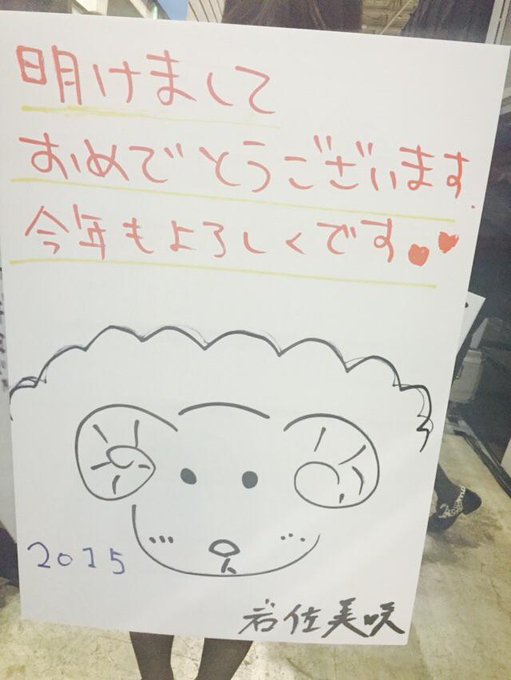 明けまして
おめでとうございます.
今年もよろしくです
2015
岩佐美咲